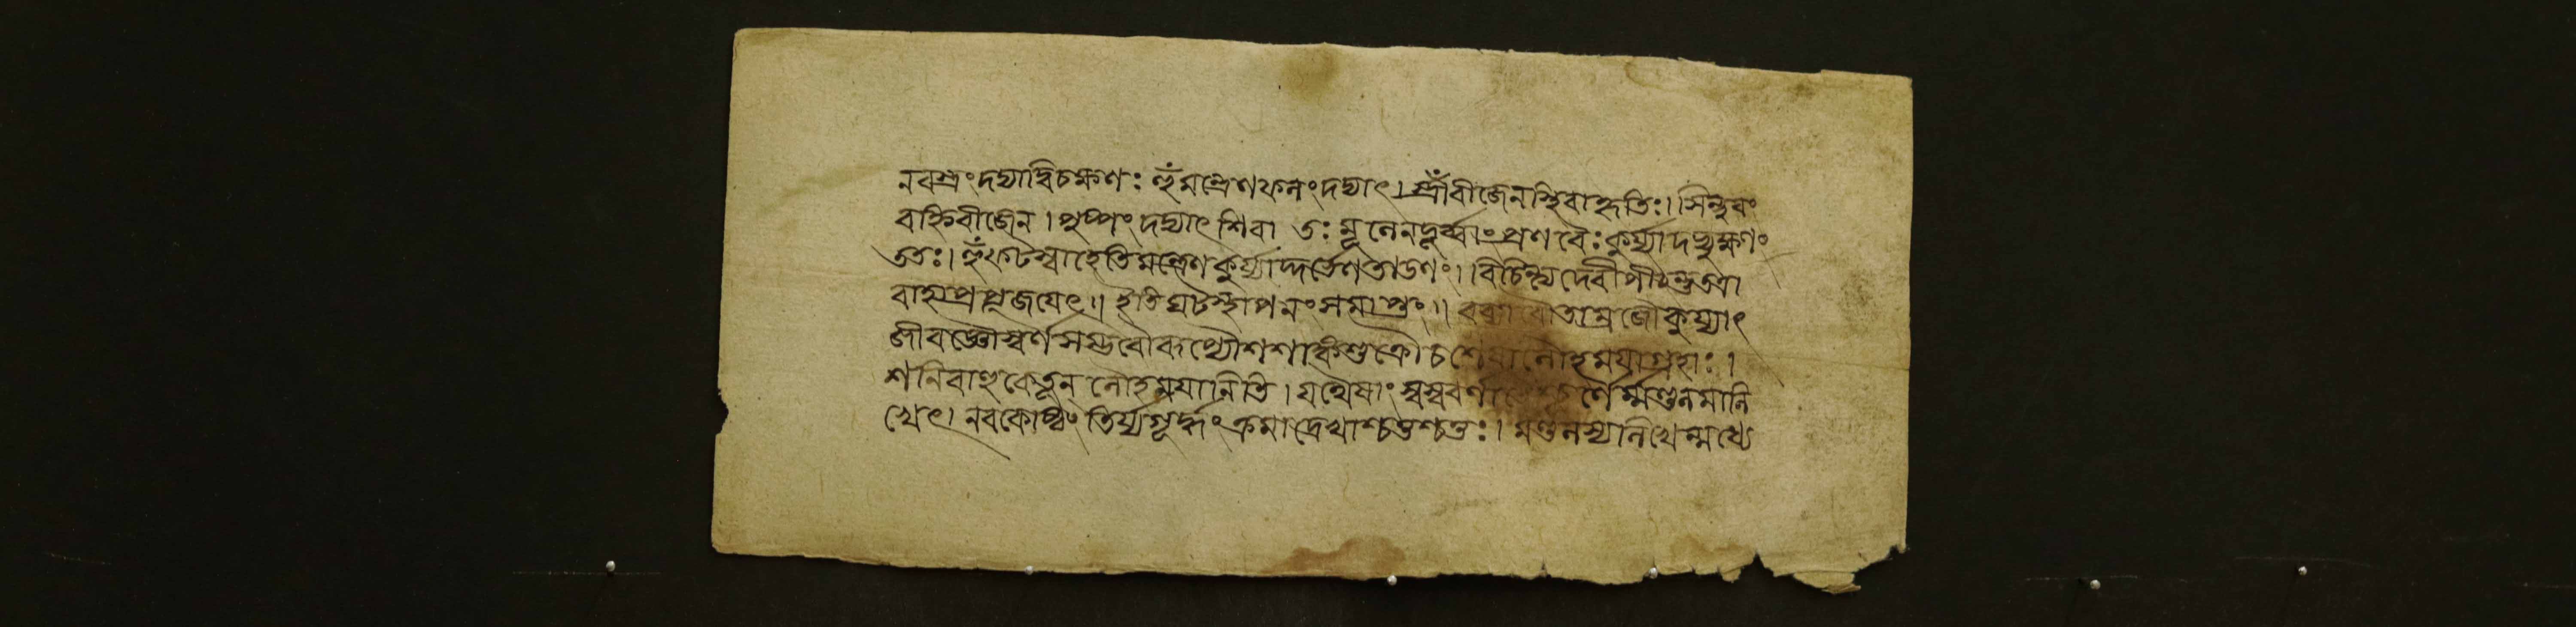 নবস্ত্রংদদ্যাদ্বিচক্ষণঃ হুঁমন্ত্রেণফলংদদ্যাৎ। স্ত্রীঁবীজেনস্থিৰাহৃতিঃ।। সিন্দুৰং
বহ্নিবীজেন। পুষ্পংদদ্যাৎ শিবা তঃ মূলেনদূর্ব্বাংপ্রণবৈঃকুর্য্যাদভ্যুক্ষণং
ততঃ। হুঁফটস্বাহেতিমন্ত্রেণকুর্য্যাদ্দর্ভেণতাডণং।। বিচিন্ত্যদেবীপীঠন্তুতত্রা
বাহ্যপ্রপূজযেৎ।। ইতিঘটস্থাপনংসমাপ্তং।। তাম্রজৌকুর্য্যাৎ
জীবজ্ঞৌস্বর্ণসম্ভবৌৰূপ্যৌশশাঙ্কশুক্রৌচ লৌহমযাগ্রহাঃ।
শনিৰাহুকেতূন্ লৌহমযানিতি। যথৈষাং স্বস্ববর্ণ র্ণৈর্ম্মণ্ডলমালি
খেৎ। নবকোষ্ঠং তির্য্যগূর্দ্ধংক্রমাদ্ৰেখাশ্চতুশ্চতুঃ। মণ্ডলস্যালিখেন্মধ্যে